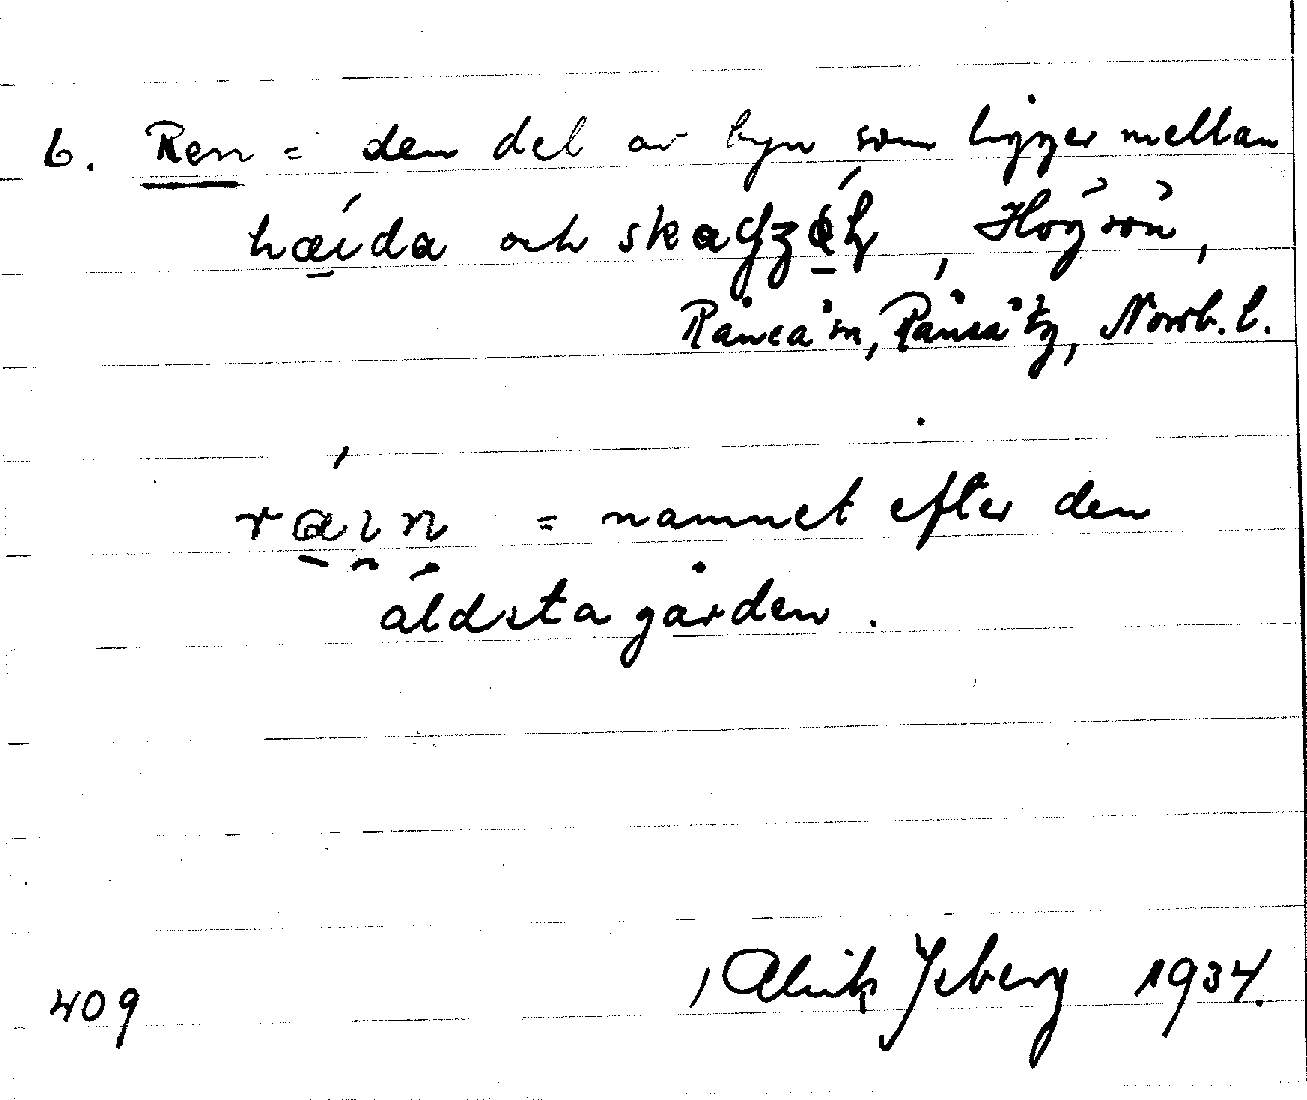 6. Ren = den del av byn som ligger mellan
hæida och , Högsön,
Råneå sn, Råneå tg, Norrb. l.
ræin = namnet efter den
äldsta gården.
409 Ulrik Ysberg 1934.